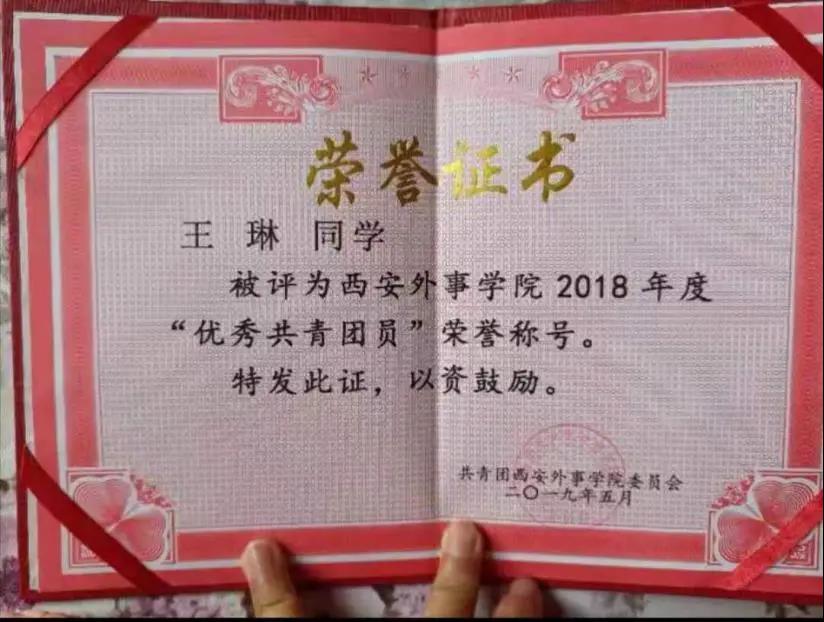 荣誉证书
王 琳 同学
被评为西安外事学院 2018 年度
“优秀共青团员”荣誉称号。
特发此证，以资鼓励。
共青团西安外事学院委员会
二〇一九年五月